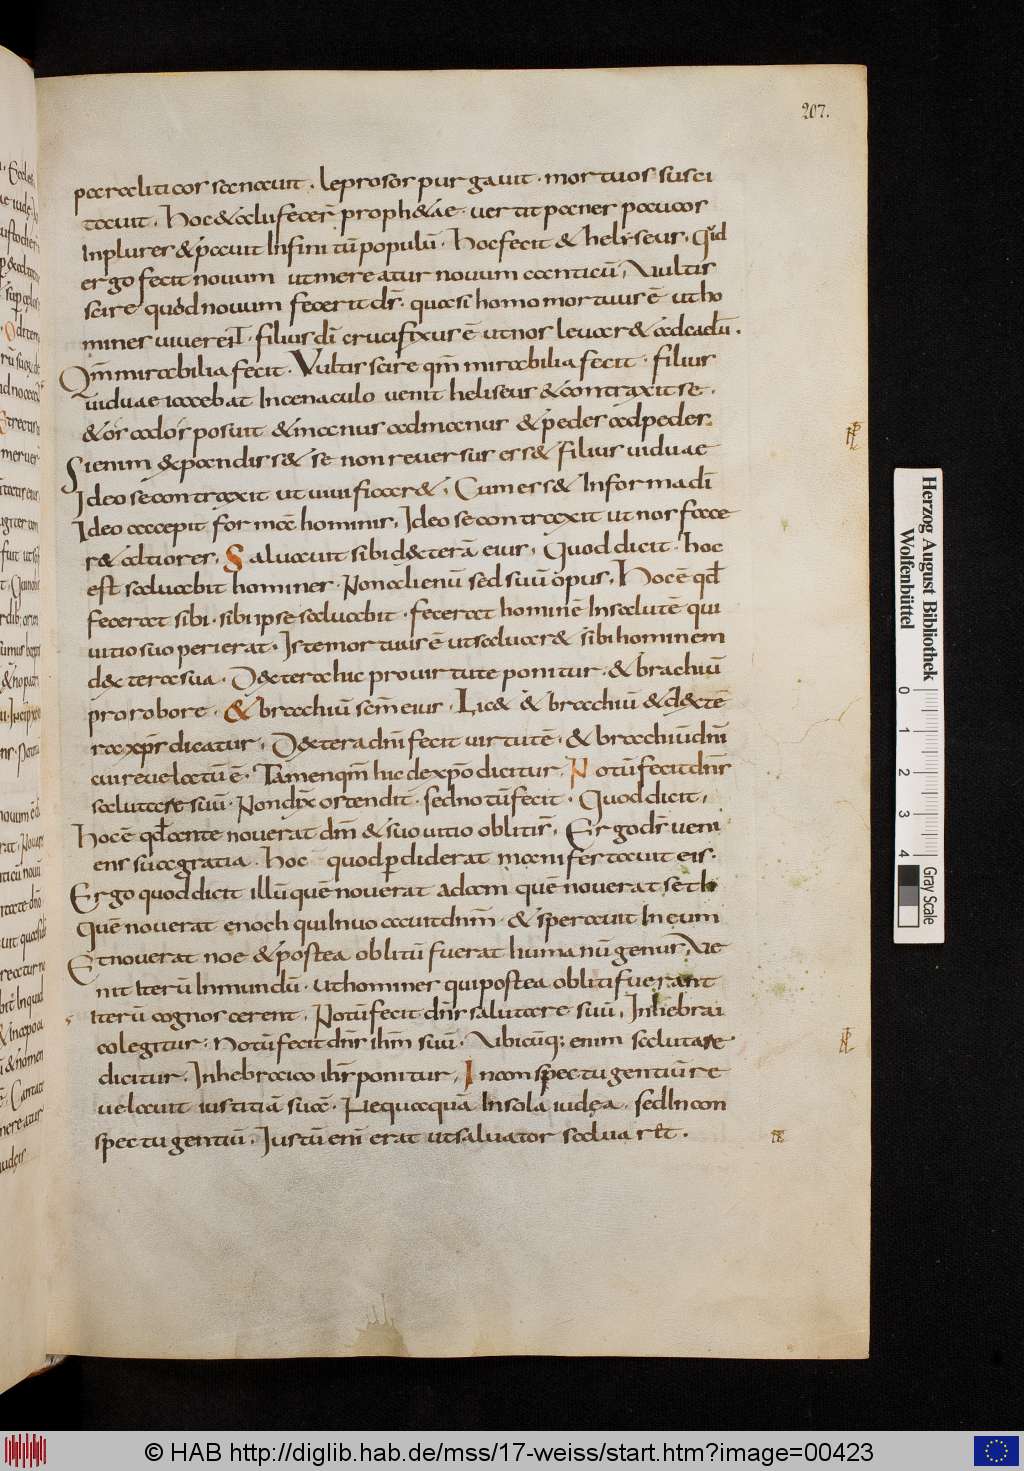 207.
paraliticos sanauit · leprosos purgauit · mortuos susci
tauit · hoc & alii fecer̄ proph&ae · uertit paner paucos
Inplures & pauit Infinitū populū · hoc fecit & helyseus · Quid
ergo fecit nouum ut mereatur nouum canticū · Uultis
scire quod nouum fecerit dr̄ · quasi homo mortuus ē ut ho
mines uiuerent · filius dī crucifixus ē ut nos leuar& ad caelū ·
Qm̄ mirabilia fecit · Vultis scire qm̄ mirabilia fecit · filius
uiduae iacebat Incenaculo uenit heliseus & contraxit se ·
& os ad os posuit & manus ad manus & pedes ad pedes
Si enim & pandiss& se non reuersus ess& filius uiduae
Ideo se contraxit ut uiuificar& · Cum ess& In forma dī
Ideo accepit formā hominis · Ideo se contraxit ut nos face
r& altiores · Saluauit sibi d&terā eius · Quod dicit · hoc
est saluabit homines · Non alienū sed suū opus · Hoc ē qđ
fecerat sibi · sibi ipse saluabit · fecerat hominē In salutē qui
uitio suo perierat · Iste mortuus ē ut saluar& sibi hominem
d&tera sua · D&tera hic pro uirtute ponitur & brachiū
pro robore · & brachiū scm̄ eius · Lic& & brachiū & d&te
ra xp̄s dicatur · D&tera dn̄i fecit uirtutē · & brachiū dn̄i
cui reuelatū ē · Tamen qm̄ hic de xpō dicitur · Notū fecit dn̄s
salutare suū · Non dix̄ ostendit · sed notū fecit · Quod dicit,
Hoc ē qđ ante nouerat dm̄ & suo uitio oblitus · Ergo ds̄ ueni
ens sua gratia · hoc quod pdiderat manifestauit eis ·
Ergo quod dicit illū quē nouerat adam quē nouerat seth
Quē nouerat enoch qui Inuocauit dnm̄ · & sperauit In eum
Et nouerat noe & postea oblitū fuerat humanū genus · Ue
nit Iterū In mundū · ut homines qui postea obliti fuerant
Iterū cognoscerent · Notū fecit dn̄s salutare suū · In hebrai
co legitur · Notū fecit dn̄s ih̄m suū · Ubicūq; enim salutare
dicitur · In hebraico ih̄s ponitur · In conspectu gentiū re
uelauit iustitiā suā · Nequaquā In sola iudęa · sed In con
spectu gentiū · Iustū eni erat ut saluator saluaret ·
Herzog August Bibliothek
Wolfenbüttel
0 1 2 3 4
Gray Scale
© HAB http://diglib.hab.de/mss/17-weiss/start.htm?image=00423